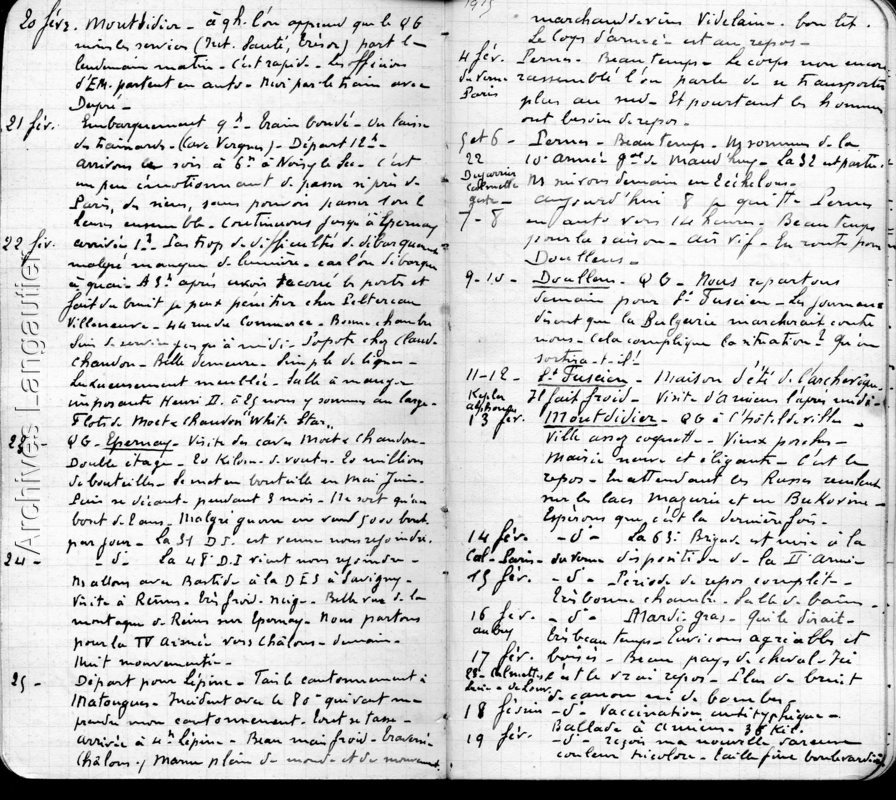 20 févr. Montdidier - à 9h. l'on apprend que le QG
moins les services (Int. Santé, trésor) part le
lendemain matin - C'est rapide - Les officiers
d'EM. partent en auto - Moi par le train avec
Dupré -
21 fév. Embarquement 9h - train bondé - On laisse
des trainards - (Cave Vergnes) - Départ 12h -
arrivons le soir à 6h à Noisy le Sec - C'est
un peu émotionnant de passer si près de
Paris, des siens, sans pouvoir passer
ensemble - Continuons jusqu'à Epernay
22 fév. arrivée 1h - Pas trop de difficultés de débarquement
malgré manque de lumière - car l'on débarque
à quai - A 3h après avoir secoué les portes et
fait du bruit je peux pénétrer chez
Villeneuve - 44 rue du Commerce - Bonne chambre
jusqu'à midi - Popote chez Claude
Chandon - Belle demeure - Simple de lignes -
Luxueusement meublée - Salle à manger
imposante Henri II. à 25 nous y sommes au large -
Flots de Moet & Chandon "White Star"
23 - QG - Epernay - Visite des caves Moet & Chandon -
Double étage - 20 Kilom. de voûtes - 20 millions
de bouteilles - Se met en bouteille en Mai Juin -
Puis se décante pendant 3 mois - Ne sort qu'au
bout de 2 ans - Malgré guerre on vend 5000 bout.
par jour - La 31 D.I. est venue nous rejoindre.
24 - - d° - La 48 D.I vient nous rejoindre -
Ns allons avec Bastide à la DES à Savigny -
Visite à Reims - très froid - neige - Belle vue de la
montagne de Reims sur Epernay - Nous partons
pour la IV Armée vers Châlons - demain -
Nuit mouvementée -
25 - Départ pour Lépine - Fais le cantonnement à
Matougues - Incident avec le 80e qui veut me
prendre mon cantonnement - tout se tasse -
arrivée à 4h Lépine - Beau mais froid - traversé
Châlons s/ Marne plein de monde et de mouvement.
1915
marchand de vins Videlaine - bon lit -
Le Corps d'armée est au repos -
4 fév. Pernes - Beau temps - Le corps non encore
rassemblé l'on parle de se transporter
Paris plus au sud - Et pourtant les hommes
ont besoin de repos -
5 et 6 - Pernes - Beau temps - Ns sommes de la
22 10e armée gal de Maud'huy - La 32 est partie
Ns suivons demain en 2 échelons -
aujourd'hui 8 je quitte Pernes
7-8 en auto vers 14 heures - Beau temps
pour la saison - Air vif - En route pour
Doullens -
9-10 - Doullens - QG - Nous repartons
demain pour St Fuscien - Les journaux
disent que la Bulgarie marcherait contre
nous - Cela complique la situation ? Qu'en
sortira-t-il !
11-12 - St Fuscien - Maison d'été de l'archevêque -
Il fait froid - Visite d'Amiens l'après midi -
13 fév. Montdidier - QG à l'hôtel de ville -
Ville assez coquette - Vieux porches -
Mairie neuve et élégante - C'est le
repos - En attendant les Russes reculent
sur les lacs Mazurie et en Bukovine -
Espérons que c'est la dernière fois -
14 fév. - d° - La 63e Brigade est mise à la
Cal - Paris - disposition de la IIe Armée
15 fév. - d° - Période de repos complet -
Très bonne chambre - Salle de bains -
16 fév. - d° - Mardi-gras - Qui le dirait -
aubry très beau temps - Environs agréables et
17 fév. boisés - Beau pays de cheval - Ici
c'est le vrai repos - Plus de bruit
de canon ni de bombes
18 février - d° - vaccination antityphique -
Ballade à Amiens - 36 Kil.
19 fév. - d° - reçois ma nouvelle vareuse
couleur tricolore - taille fine boulevardière
Archives Langautier